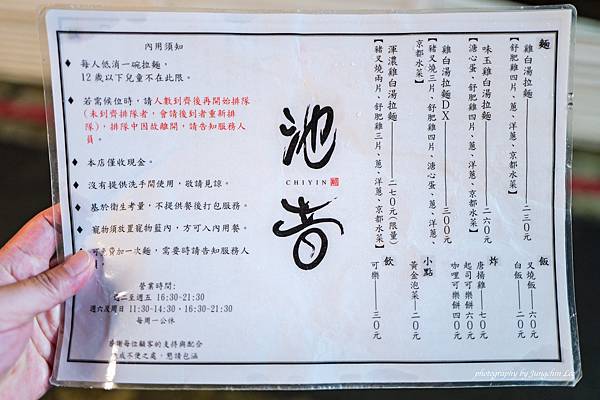 內用須知
每人低消一碗拉麵,
12歲以下兒童不在此限。
若需候位時,請人數到齊後再開始排隊
(未到齊排隊者,會請後到者重新排
隊),排隊中因故離開,請告知服務人
員。
本店僅收現金。
沒有提供洗手間使用,敬請見諒。
基於衛生考量,不提供餐後打包服務。
寵物須放置寵物籃內,方可入內用餐。
可免費加一次麵,需要時請告知服務人
營業時間:
二至週五 16:30-21:30
週六及周日 11:30-14:30、16:30-21:30
每周一公休
感謝每位顧客的支持與配合
成不便之處,懇請包涵
池音
CHIYIN
麵
雞白湯拉麵——二三0元
【舒肥雞四片、蔥、洋蔥、京都水菜】
味玉雞白湯拉麵——二六0元
【溏心蛋、舒肥雞四片、蔥、洋蔥、京都水菜】
雞白湯拉麵DX——三00元
【豬叉燒三片、舒肥雞四片、溏心蛋、蔥、洋蔥、
京都水菜】
渾濃雞白湯拉麵——二七0元(限量)
【豬叉燒兩片、舒肥雞三片、蔥、洋蔥、京都水菜】
飯
叉燒飯——六0元
白飯——二0元
炸
唐揚雞——七0元
起司可樂餅 六0元
咖哩可樂餅 四0元
小點
黃金泡菜——二0元
飲
可樂——三0元
photography by Jungchin Lee